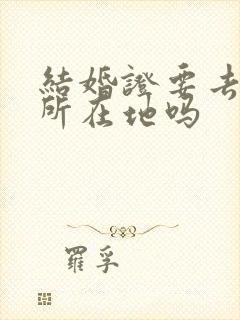 結婚證要去
所在地吗
羅孚